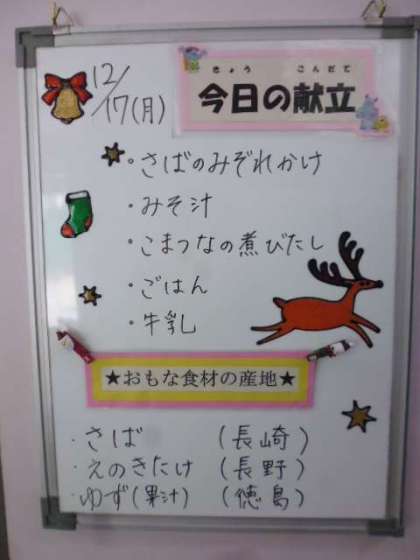 12/17(月)
きょう こんだて
今日の献立
・さばのみぞれかけ
・みそ汁
・こまつなの煮びたし
・ごはん
・牛乳
★おもな食材の産地★
・さば (長崎)
・えのきたけ (長野)
・ゆず(果汁) (徳島)